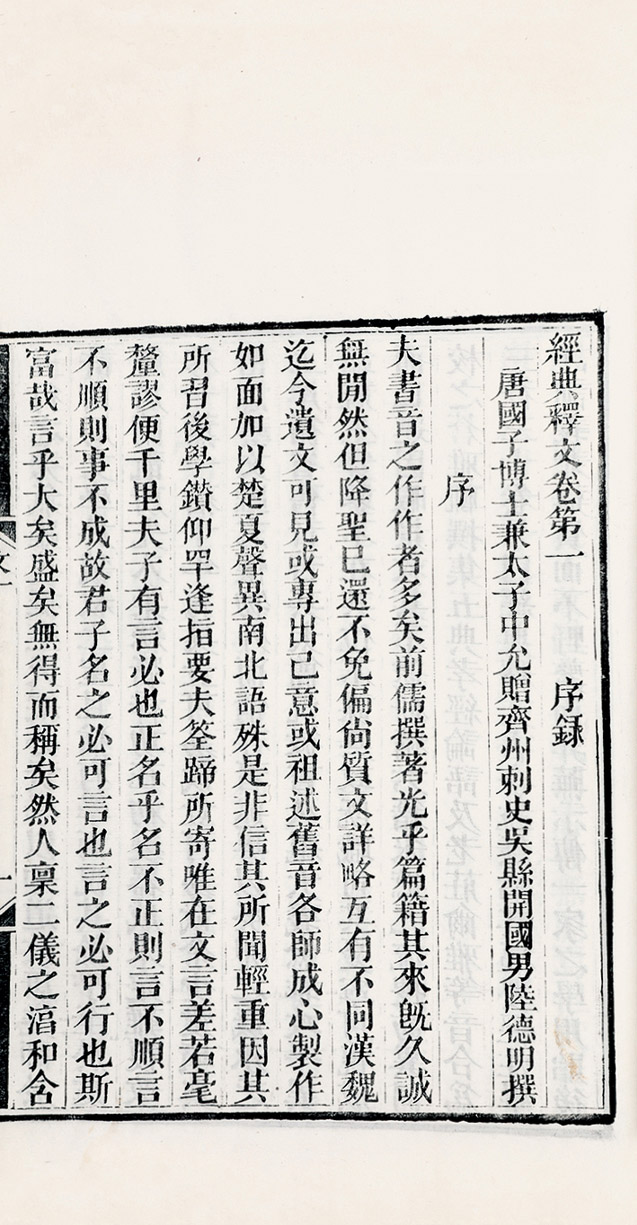 經典釋文卷第一　序録
唐國子博士兼太子中允贈齊州刺史吳縣開國男陸德明撰
序
夫書音之作作者多矣前儒撰著光乎篇籍其來旣久誠
無閒然但降聖已還不免偏尙質文詳略互有不同漢魏
迄今遺文可見或專出己意或祖述舊音各師成心製作
如面加以楚夏聲異南北語殊是非信其所聞輕重因其
所習後學鑽仰罕逢指要夫筌蹄所寄唯在文言差若毫
釐謬便千里夫子有言必也正名乎名不正則言不順言
不順則事不成故君子名之必可言也言之必可行也斯
富哉言乎大矣盛矣無得而稱矣然人禀二儀之淯和含